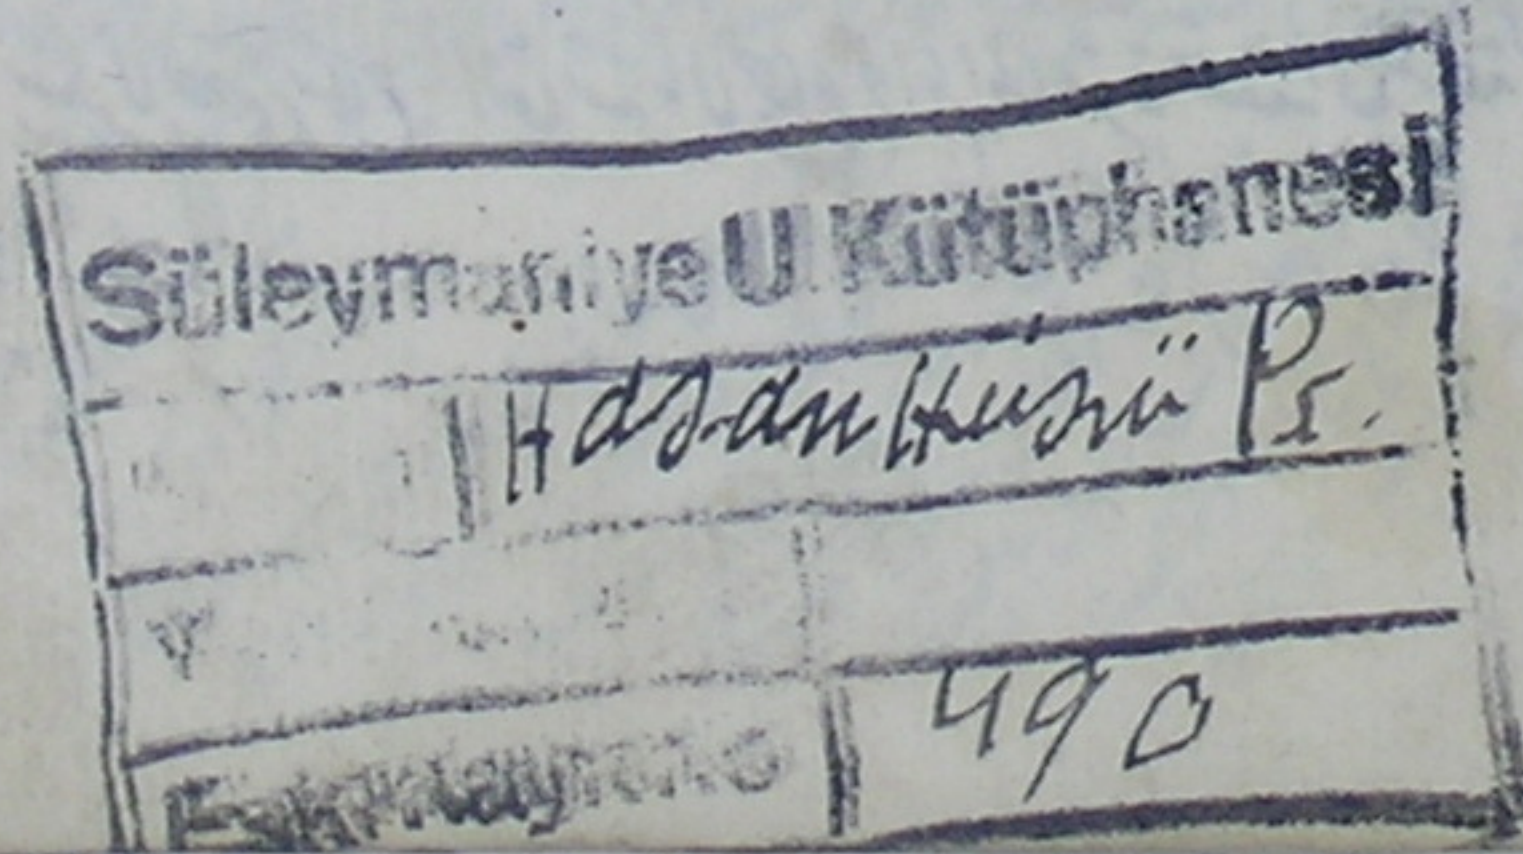 Süleymaniye U. Kütüphanesi
Hasan Hüsnü Pş.
Eski Kayıt No 490